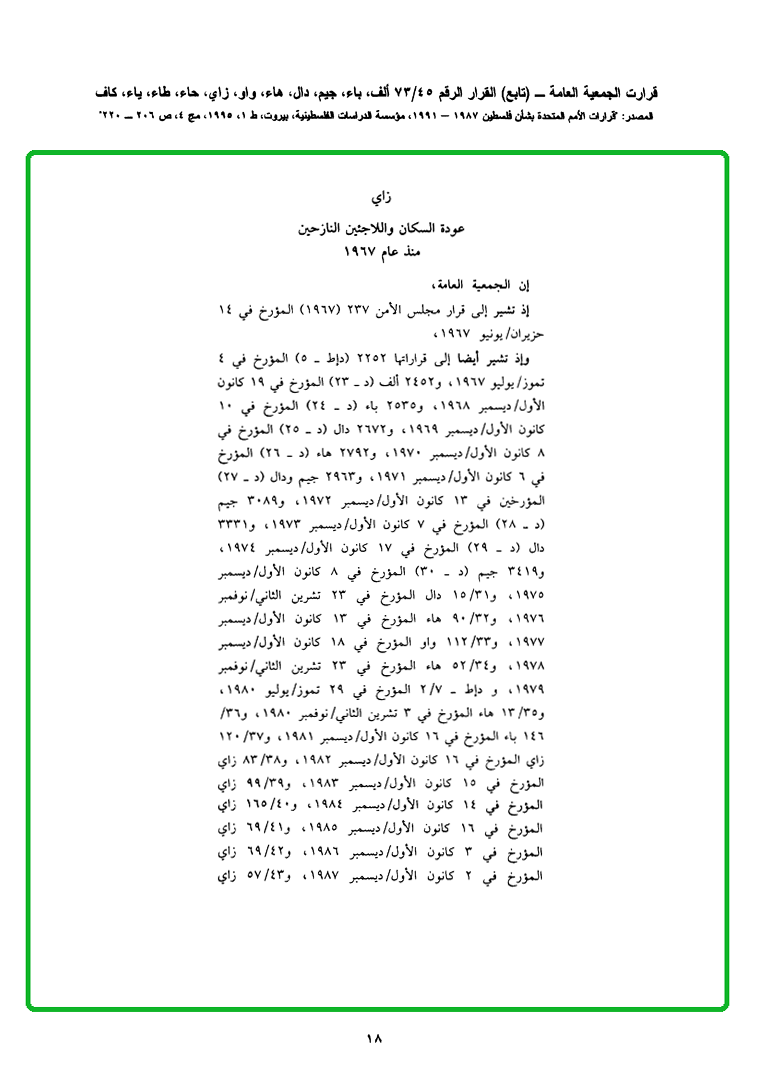 قرارت الجمعية العامة ــ (تابع) القرار الرقم ٧٣/٤٥ ألف، باء، جيم، دال، هاء، واو، زاي، حاء، طاء، ياء، كاف
المصدر: "قرارات الأمم المتحدة بشأن فلسطين ١٩٨٧ – ١٩٩١، مؤسسة الدراسات الفلسطينية، بيروت، ط ١، ١٩٩٥، مج ٤، ص ٢٠٦ ــ ٢٢٠"
زاي
عودة السكان واللاجئين النازحين
منذ عام ١٩٦٧
إن الجمعية العامة،
إذ تشير إلى قرار مجلس الأمن ٢٣٧ (١٩٦٧) المؤرخ في ١٤
حزيران/يونيو ١٩٦٧،
وإذ تشير أيضا إلى قراراتها ٢٢٥٢ (دإط ـ ٥) المؤرخ في ٤
تموز/يوليو ١٩٦٧، و٢٤٥٢ ألف (د ـ ٢٣) المؤرخ في ١٩ كانون
الأول/ديسمبر ١٩٦٨، و٢٥٣٥ باء (د ـ ٢٤) المؤرخ في ١٠
كانون الأول/ديسمبر ١٩٦٩، و٢٦٧٢ دال (د ـ ٢٥) المؤرخ في
٨ كانون الأول/ديسمبر ١٩٧٠، و٢٧٩٢ هاء (د ـ ٢٦) المؤرخ
في ٦ كانون الأول/ديسمبر ١٩٧١، و٢٩٦٣ جيم ودال (د ـ ٢٧)
المؤرخين في ١٣ كانون الأول/ديسمبر ١٩٧٢، و٣٠٨٩ جيم
(د ـ ٢٨) المؤرخ في ٧ كانون الأول/ديسمبر ١٩٧٣، و٣٣٣١
دال (د ـ ٢٩) المؤرخ في ١٧ كانون الأول/ديسمبر ١٩٧٤،
و٣٤١٩ جيم (د ـ ٣٠) المؤرخ في ٨ كانون الأول/ديسمبر
١٩٧٥، و١٥/٣١ دال المؤرخ في ٢٣ تشرين الثاني/نوفمبر
١٩٧٦، و٩٠/٣٢ هاء المؤرخ في ١٣ كانون الأول/ديسمبر
١٩٧٧، و١١٢/٣٣ واو المؤرخ في ١٨ كانون الأول/ديسمبر
١٩٧٨، و٥٢/٣٤ هاء المؤرخ في ٢٣ تشرين الثاني/نوفمبر
١٩٧٩، و دإط ـ ٢/٧ المؤرخ في ٢٩ تموز/يوليو ١٩٨٠،
و١٣/٣٥ هاء المؤرخ في ٣ تشرين الثاني/نوفمبر ١٩٨٠، و٣٦/
١٤٦ باء المؤرخ في ١٦ كانون الأول/ديسمبر ١٩٨١، و١٢٠/٣٧
زاي المؤرخ في ١٦ كانون الأول/ديسمبر ١٩٨٢، و٨٣/٣٨ زاي
المؤرخ في ١٥ كانون الأول/ديسمبر ١٩٨٣، و٩٩/٣٩ زاي
المؤرخ في ١٤ كانون الأول/ديسمبر ١٩٨٤، و١٦٥/٤٠ زاي
المؤرخ في ١٦ كانون الأول/ديسمبر ١٩٨٥، و٦٩/٤١ زاي
المؤرخ في ٣ كانون الأول/ديسمبر ١٩٨٦، و٦٩/٤٢ زاي
المؤرخ في ٢ كانون الأول/ديسمبر ١٩٨٧، و٥٧/٤٣ زاي
١٨